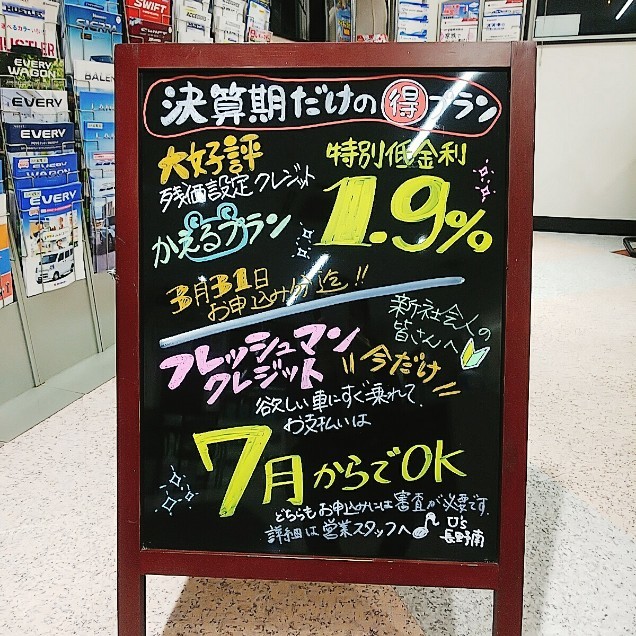 HUSTLER
SWIFT
SIERRA
HUSTLER
EVERY
WAGON
EVERY
EVERY
EVERY
EVERY
決算期だけの得プラン
大好評
残価設定クレジット
かえるプラン
特別低金利
1.9%
3月31日
お申込み分迄!!
新社会人の
皆さんへ
フレッシュマン
クレジット
今だけ
欲しい車にすぐ乗れて、
お支払いは
7月からでOK
どちらもお申込みには審査が必要です。
詳細は営業スタッフへ
U's
長野南